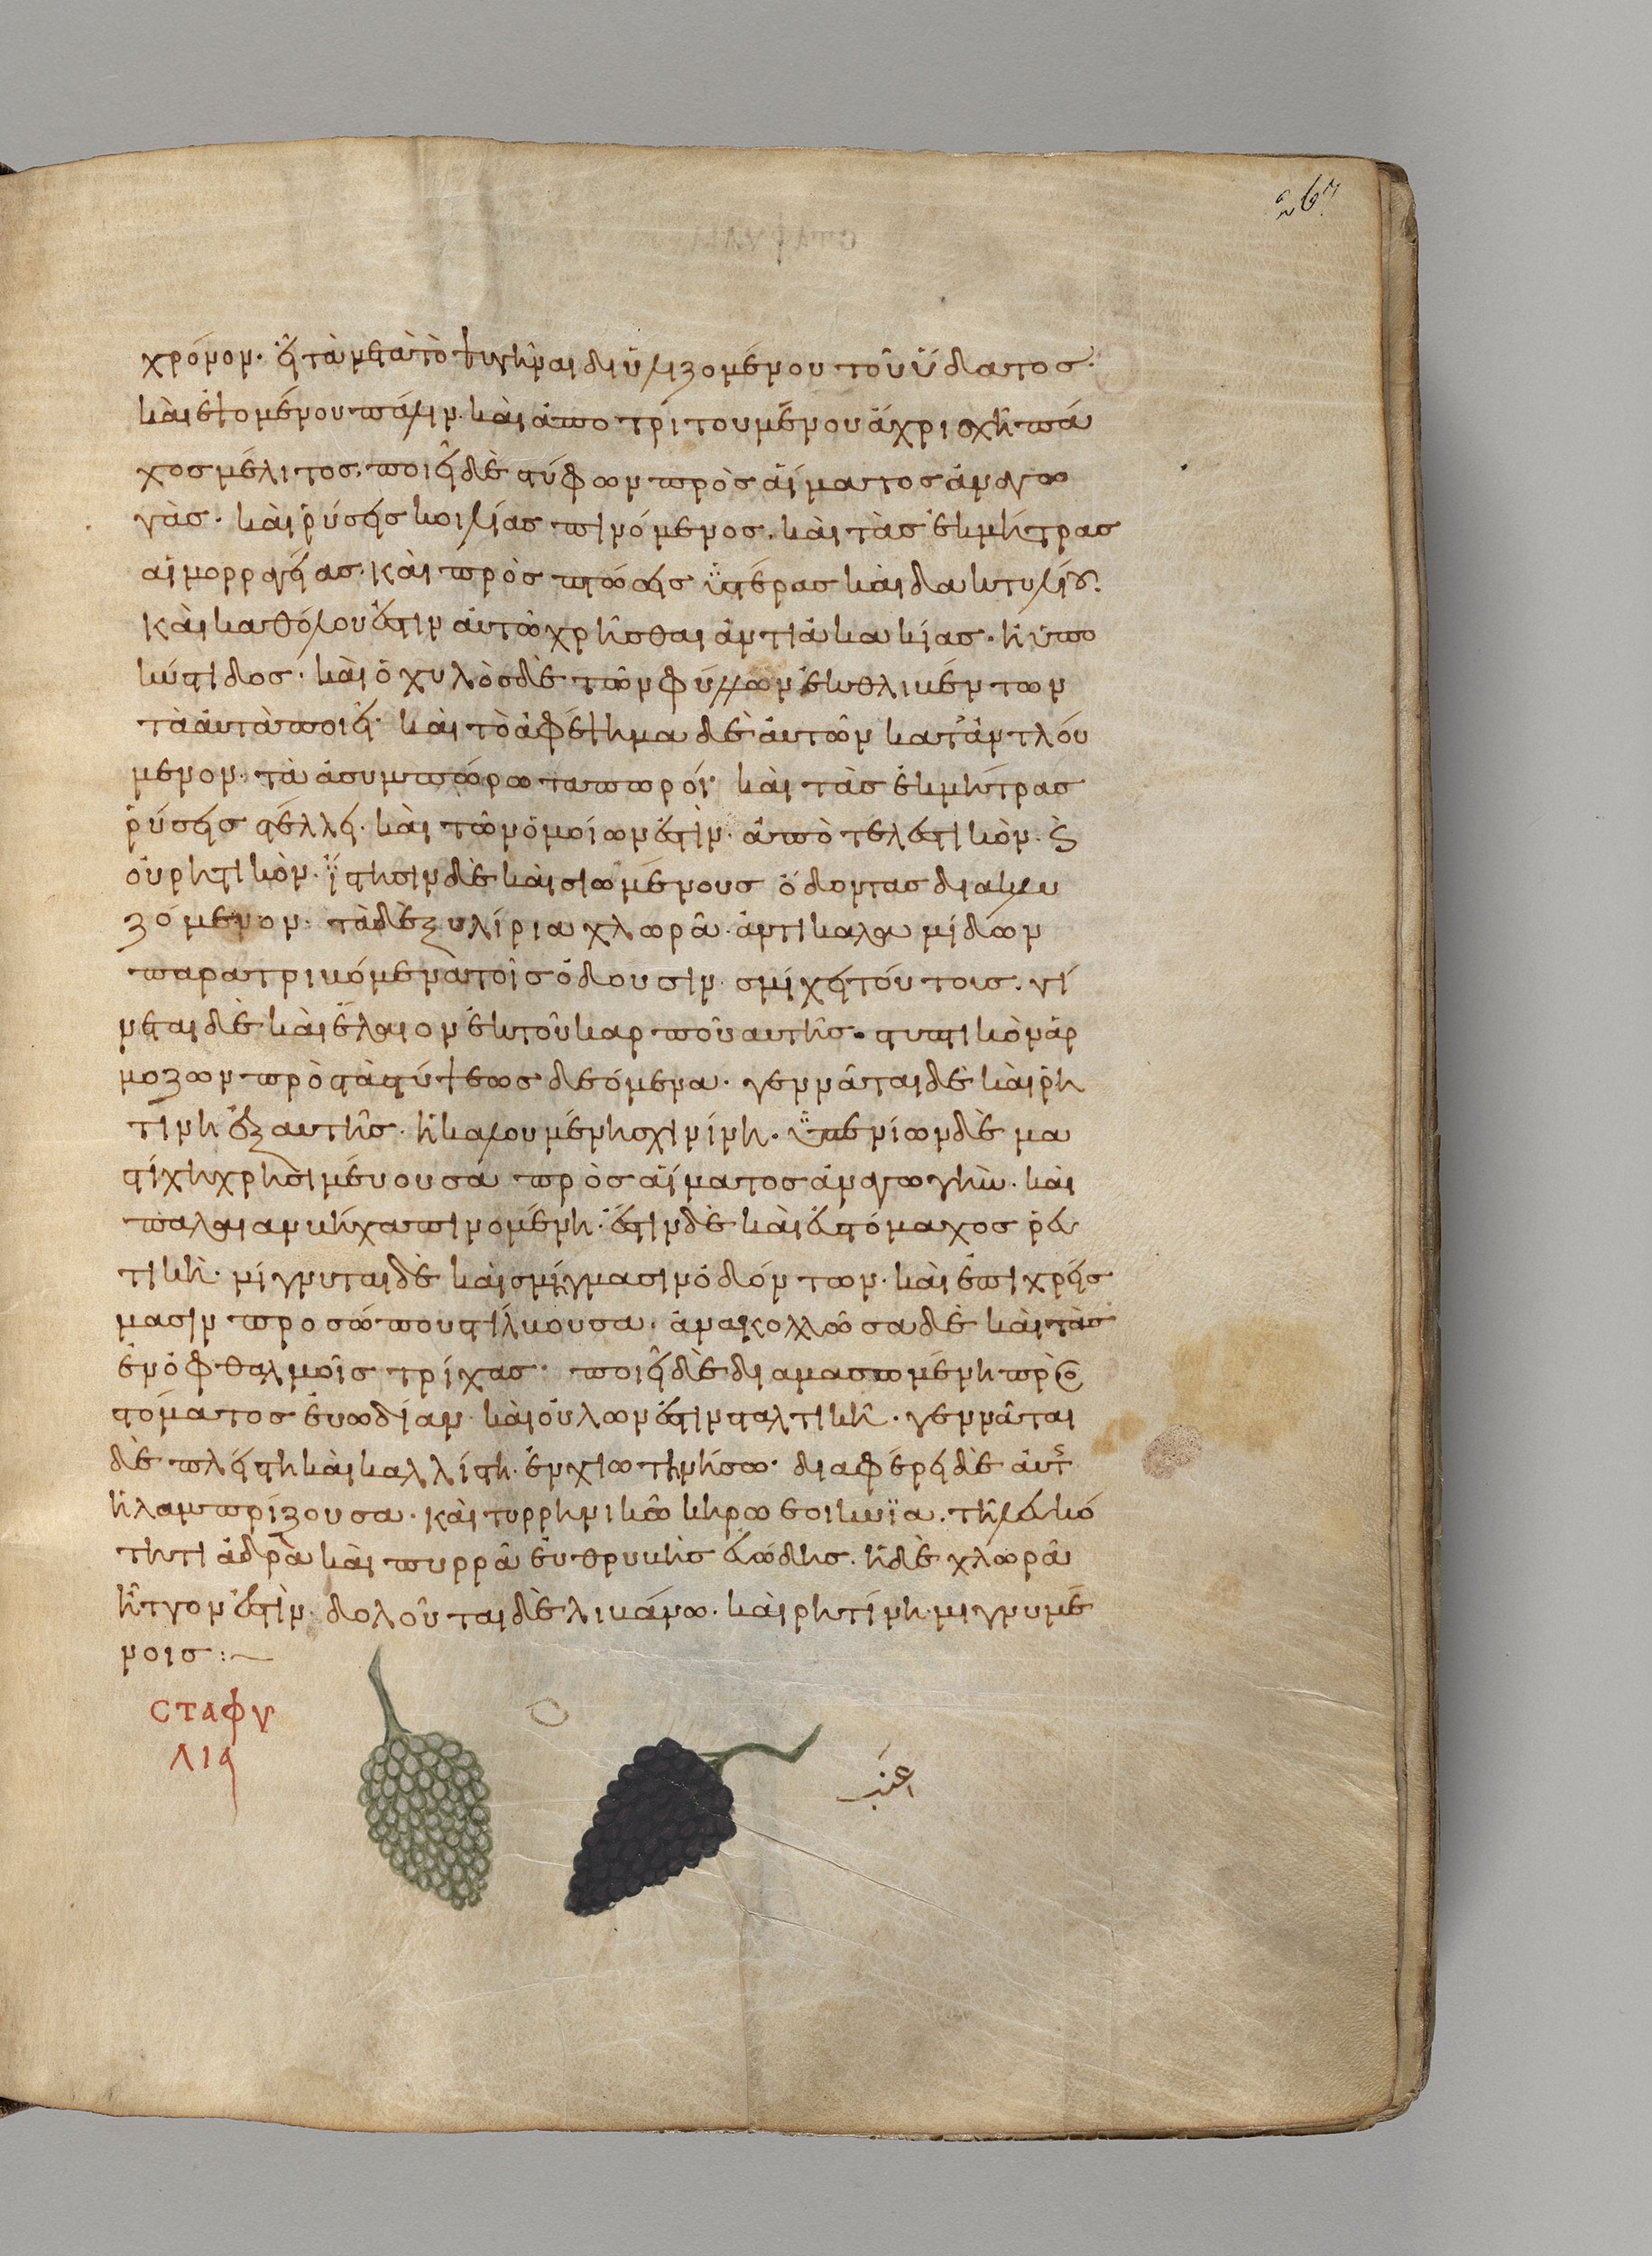 267
χρόνον. εἶτα μετὰ τὸ ψυγῆναι διϋλιζομένου τοῦ ὕδατος.
καὶ ἑψομένου πάλιν. καὶ ἀποτριτουμένου ἄχρι σχῆ πά
χος μέλιτος, ποιεῖ δὲ στύφων πρὸς αἵματος ἀναγω
γὰς. καὶ ῥύσεις κοιλίας πινόμενος. καὶ τὰς ἐκ μήτρας
αἱμορραγείας. καὶ πρὸς πτώσεις ὑστέρας καὶ δακτυλίου.
καὶ καθόλου ἐστιν αὐτῶ χρῆσθαι ἀντὶ ἀκακίας. ἢ ὑπο
κύστιδος. καὶ ὁ χυλὸς δὲ τῶν φύλλων ἐκθλικέντων
τὰ αὐτὰ ποιεῖ. καὶ τὸ ἀφέψημα δὲ αὐτῶν καταντλού
μενον. τὰ ἀσυμπώρωτα πωροῖ. καὶ τὰς ἐκ μήτρας
ῥύσεις στέλλει. καὶ τῶν ὁμοίων ἐστὶν. ἀποτελεστικὸν. καὶ
οὐρητικὸν. ἵστησιν δὲ καὶ σιωμένους ὀδοντας διακλυ
ζόμενον. τὰ δὲ ξυλίρια χλωρᾶ. ἀντὶ καλαμίδων
παρατρικόμενα τοῖς ὀδουσιν. σμίχει τούτους. γί
νεται δὲ καὶ ἔλαιον ἐκ τοῦ καρποῦ αυτῆς. στυπτικὸν ἁρ
μοζων πρὸς τὰ στύψεως δεόμενα. γεννᾶται δὲ καὶ ῥη
τίνη ἐξ αυτῆς. ἡ καλουμένη σχινίνη. ὑπ ενίων δὲ μα
στίχη χρησιμεύουσα πρὸς αἵματος ἀναγωγὴν. καὶ
παλαιαν κήχα πινομένη. ἐστιν δὲ καὶ εὐστόμαχος ῥε
τικὴ. μίγνυται δὲ καὶ σμίγμασιν ὀδόντων. καὶ ἐπιχρείς
μασιν προσώπου στίλκουσα. ἀνακολλῶσα δὲ καὶ τὰς
ἐν ὀφθαλμοῖς τρίχας. ποιεῖ δὲ διαμασωμένη πρὸς
στόματος εὐωδίαν. καὶ οὔλων ἐστιν σταλτικὴ. γεννᾶται
δὲ πλείστη καὶ καλλίστη. ἐν χίω τῆ νήσω. διαφέρει δὲ αὐτῆς
ἡ λαμπρίζουσα. καὶ τυρρηνικῶ κηρω εοικυΐα. τῆ λευκό
τητι ἁδρὰ καὶ πυρρᾶ εὐθρυκὴς εὐώδης. ἡ δὲ χλωρᾶ
ἧττον ἐστὶν. δολοῦται δὲ λικάνω. καὶ ρητίνη. μιγνυμέ
νοις :~
ΣΤΑΦΥ
ΛΙΑ
عنب